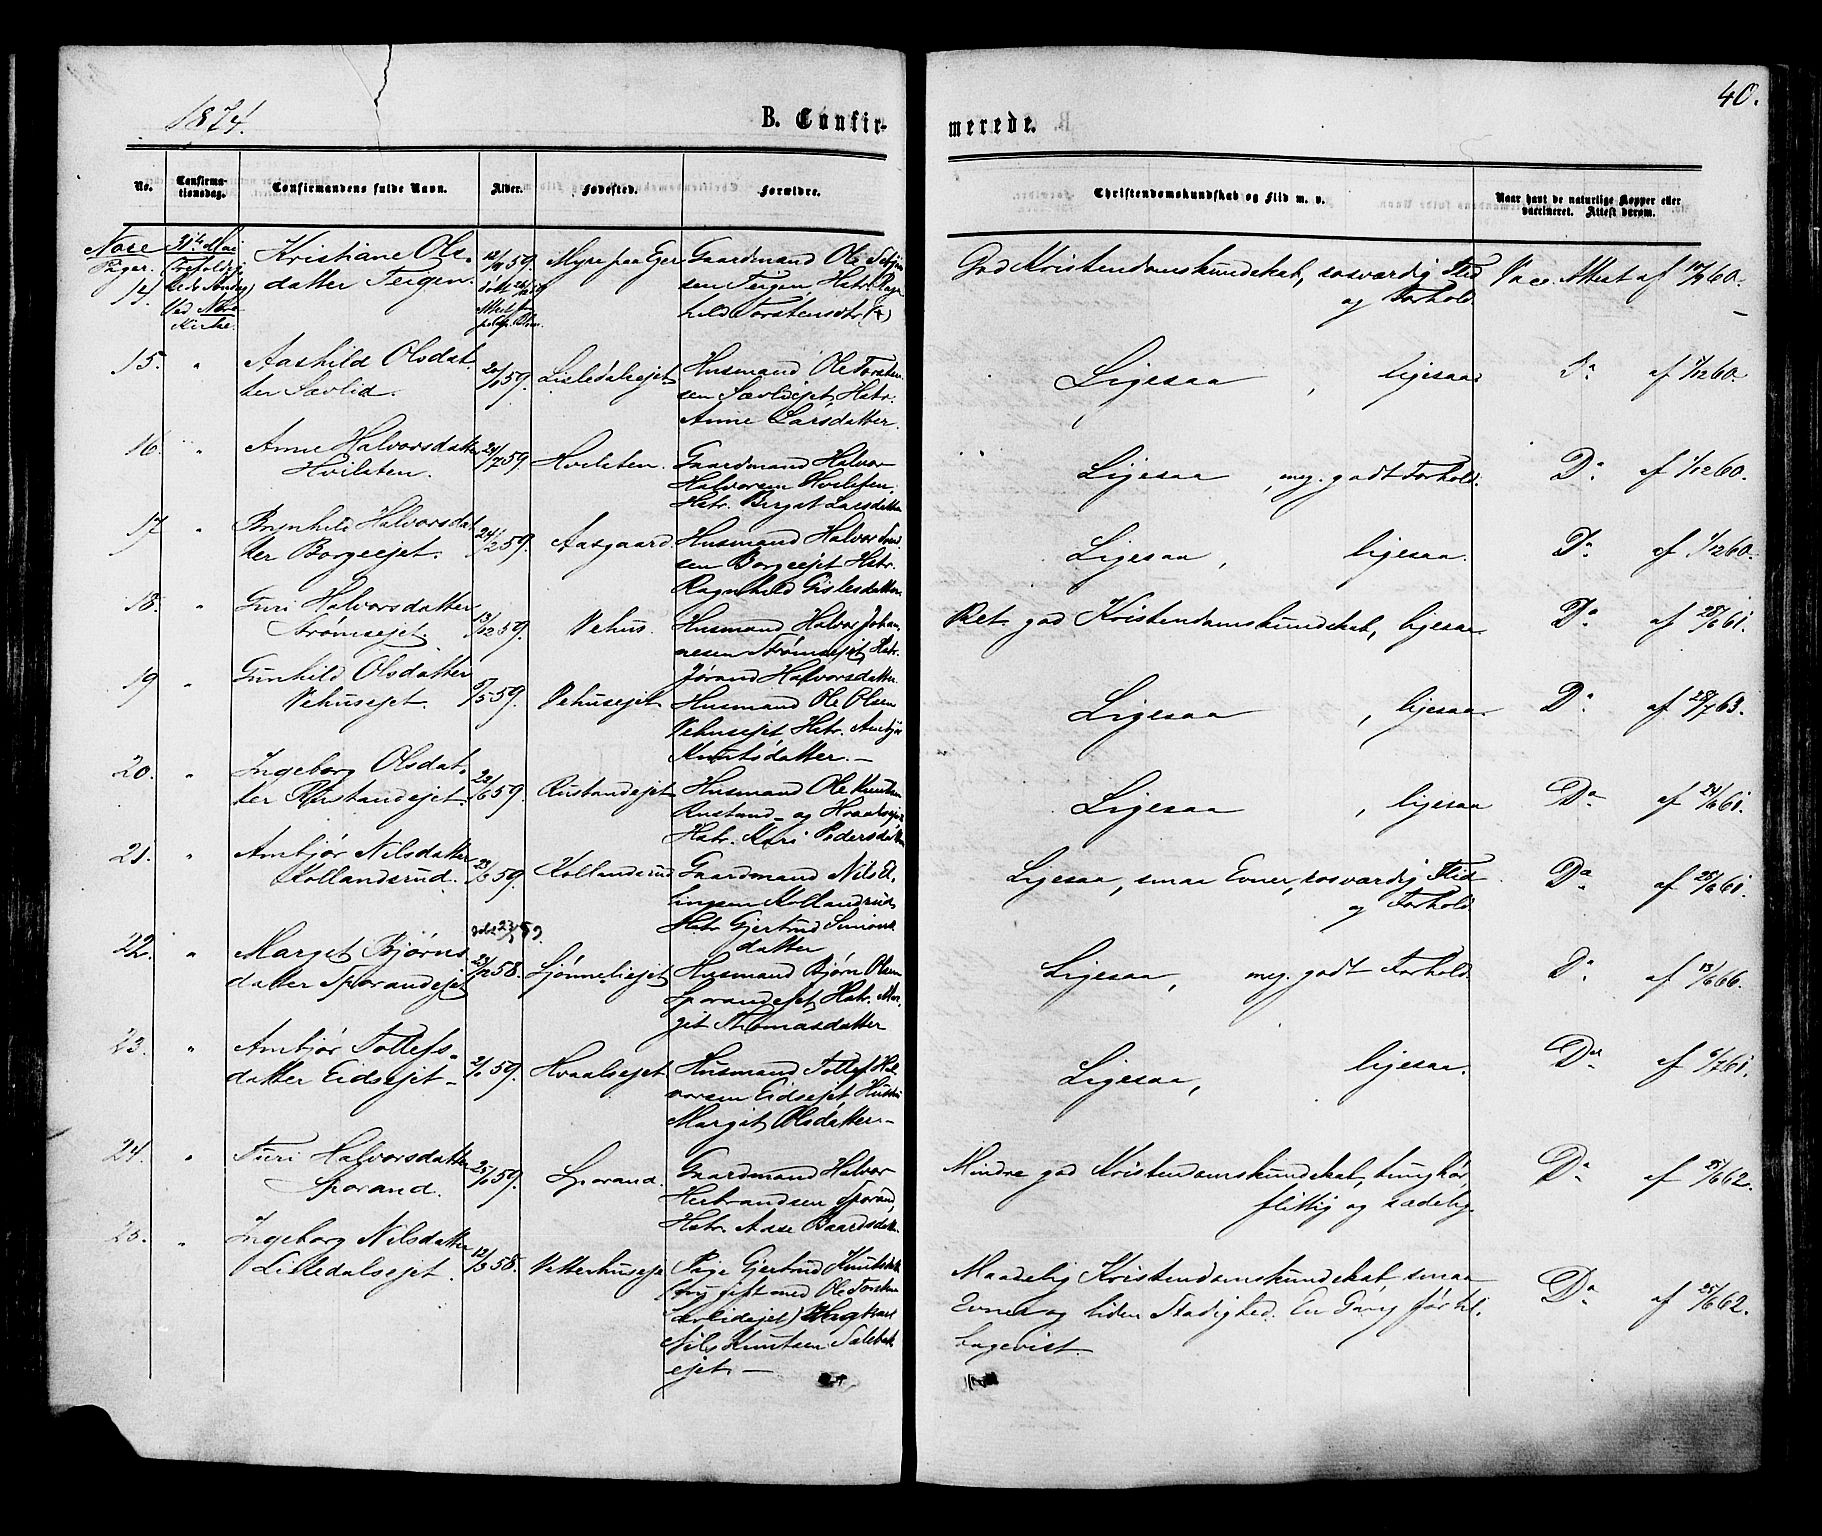 1874.
B. Confir-
merede.
40.
No.
Confirma-
tionsdag.
Confirmandens fulde Navn.
Alder.
Fødested.
Forældre.
Christendomskundskab og Flid m. v.
Naar havt de naturlige Kopper eller
vaccineret. Attest derom.
Nore
Piger.
14.
31te Mai
Kirke.
Kristiane Ols-
datter Teigen.
59.
Myre paa Gjer
Gaardmand Ole
sen Teigen Hstr.
hild Torstensdtr (+)
God Kristendomskundskab, sosværdig Flid
og Forhold
Vacc. Attest af 60.
15.
"
Aashild Olsdat-
ter Sævlid.
59.
Lisledalsejet
Husmand Ole Torsten-
sen Sævliejet, Hstr.
Anne Larsdatter.
Ligesaa, ligesaa
Do af 1/12 60.
16.
"
Anne Halvorsdatter
Hvilsten.
24/7 59.
Hvilsten.
Gaardmand Halvor
Halvorsen Hvilsten,
Hstr. Birgit Larsdatter
Ligesaa, meg. godt Forhold.
Do af 1/12 60.
17
"
Brynhild Halvorsdat
ter Borgeejet.
24/2 59.
Aasgaard
Husmand Halvor
sen Borgeejet Hstr.
Ragnhild Gislesdatter
Ligesaa, ligesaa.
Do af 1/12 60.
18.
"
Guri Halvorsdatter
Strømsejet.
13/12 59.
Vehus.
Husmand Halvor Johan-
nesen Strømsejet, Hstr.
Jørand Halvorsdatter.
Ret god Kristendomskundskab, ligesaa
Do af 28/6 61.
19
"
Gunhild Olsdatter
Vehusejet.
5/5 59.
Vehusejet
Husmand Ole Olsen
Vehusejet, Hstr. Ambjør
Knutsdatter. —
Ligesaa, ligesaa.
Do af 28/7 63.
20.
"
Ingeborg Olsdat-
ter Rustandejet.
22/6 59.
Rustandejet
Husmand Ole Knutsen
Rustand- og Hvaalsejet
Hstr. Kari Pedersdatter
Ligesaa, ligesaa
Do af 24/6 61.
21.
"
Ambjør Nilsdatter
Kollandsrud.
23/3 59.
Kollandsrud
Gaardmand Nils El-
lingsen Kollandsrud
Hstr. Gjertrud Simons-
datter
Ligesaa, smaa Evner, sosværdig Flid
og Forhold
Do af 25/6 61.
22.
"
Marget Bjørns
datter Sporandejet
58.
Sjønneliejet
Husmand Bjørn Olsen
Sporandejet, Hstr. Mar-
git Thomasdatter
Ligesaa, meg. godt Forhold
Do af 13/6 66.
23.
"
Ambjør Tollefs-
datter Eidsejet-
59.
Hvaalsejet
Husmand Tollef Hal-
vorsen Eidsejet Hustru
Margit Olsdatter.-
Ligesaa, ligesaa.
Do af 6/7 61.
24.
"
Turi Halvorsdatter
Sporand.
59.
Sporand.
Gaardmand Halvor
Herbrandsen Sporand,
Hstr. Aase Baardsdatt.
Mindre god Kristendomskundskab, tunghør,
flittig og sædelig.
Do af 25/6 62.
25.
"
Ingeborg Nilsdatter
Lilledalsejet.
12/3 58.
Vetterhuseje
Pige Gjertrud Knutsdatt
(nu gift med Ole Torsten
Ungkarl
Nils Knutsen
ejet. —
Maadelig Kristendomskundskab smaa
Evner og liden Stadighed. En Gang før til-
bagevist.
Do af 25/6 62.